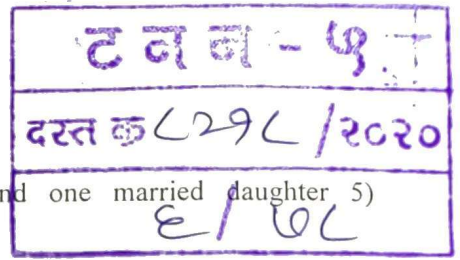 ट न न - ५
दस्त क्र ८२१८ / २०२०
nd one married daughter 5)
६ / ७८